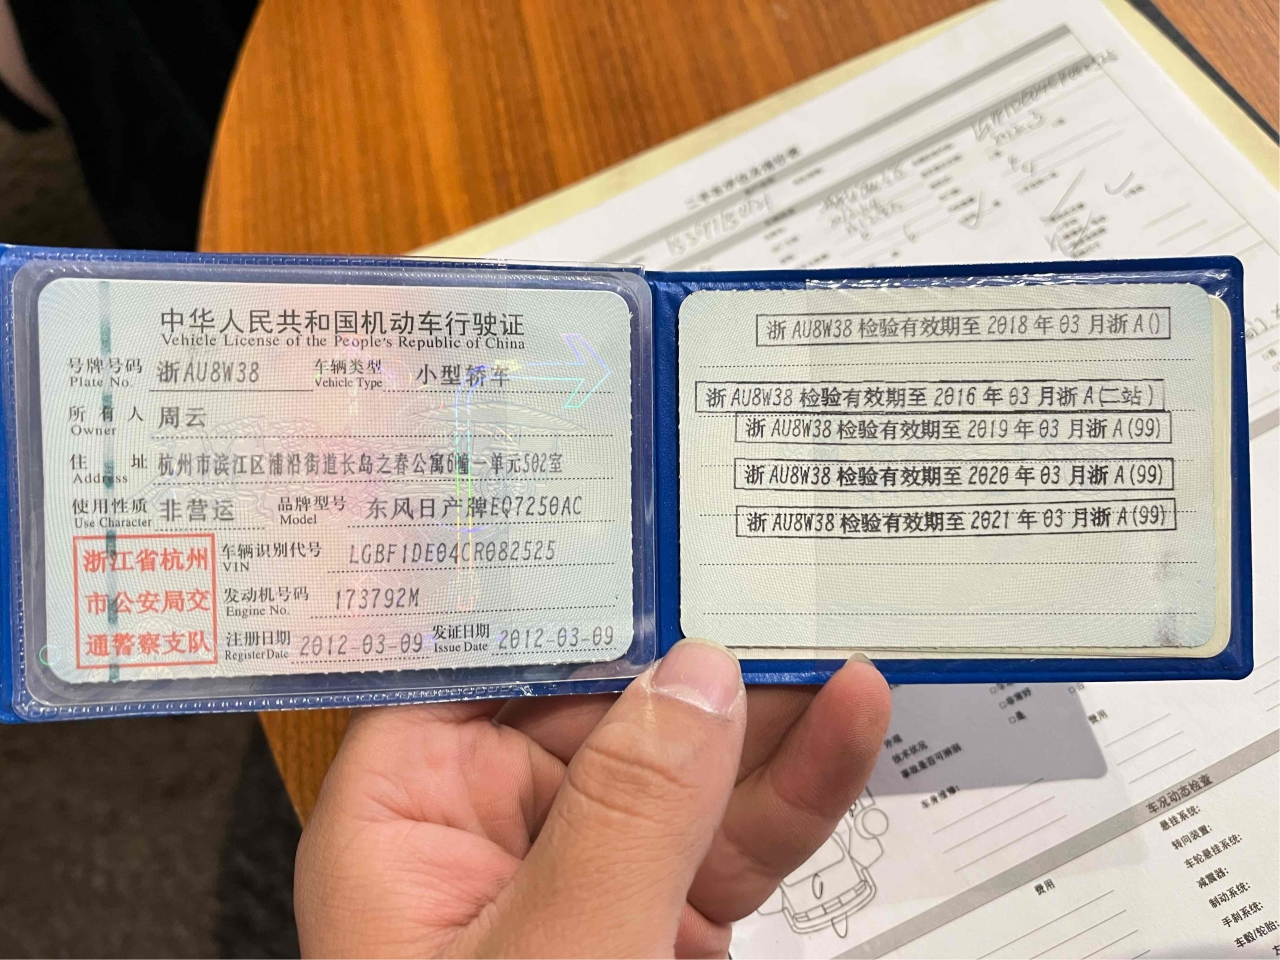 中华人民共和国机动车行驶证
Vehicle License of the People's Republic of China
号牌号码 浙AU8W38 车辆类型 小型轿车
Plate No. Vehicle Type
所有人 周云
Owner
住址 杭州市滨江区浦沿街道长岛之春公寓6幢一单元502室
Address
使用性质 非营运 品牌型号 东风日产牌EQ7250AC
Use Character Model
浙江省杭州
市公安局交
通警察支队
车辆识别代号 LGBF1DE04CR082525
VIN
发动机号码 173792M
Engine No.
注册日期 2012-03-09 发证日期 2012-03-09
Register Date Issue Date
浙AU8W38 检验有效期至 2018 年 03 月浙A()
浙AU8W38 检验有效期至 2016 年 03 月浙A(二站)
浙AU8W38 检验有效期至 2019 年 03 月浙A(99)
浙AU8W38 检验有效期至 2020 年 03 月浙A(99)
浙AU8W38 检验有效期至 2021 年 03 月浙A(99)
外观
技术状况
事故是否可瞬间
车身维修:
费用
费用
车况动态检查
悬挂系统:
转向装置:
车轮悬挂系统:
减震器:
制动系统:
手刹系统:
车毂/轮胎: